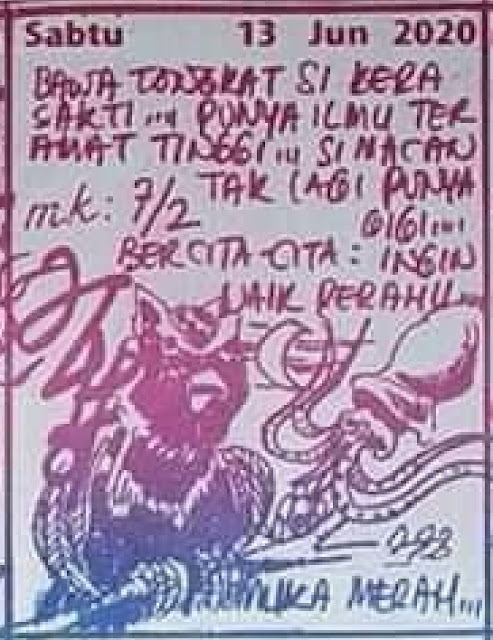 Sabtu 13 Jun 2020
BAWA TONGKAT SI KERA
SAKTI.... PUNYA ILMU TER
AMAT TINGGI... SI MACAN
TAK LAGI PUNYA
mk: 7/2 GIGI....
BERCITA-CITA: INGIN
NAIK PERAHU...
MUKA MERAH...